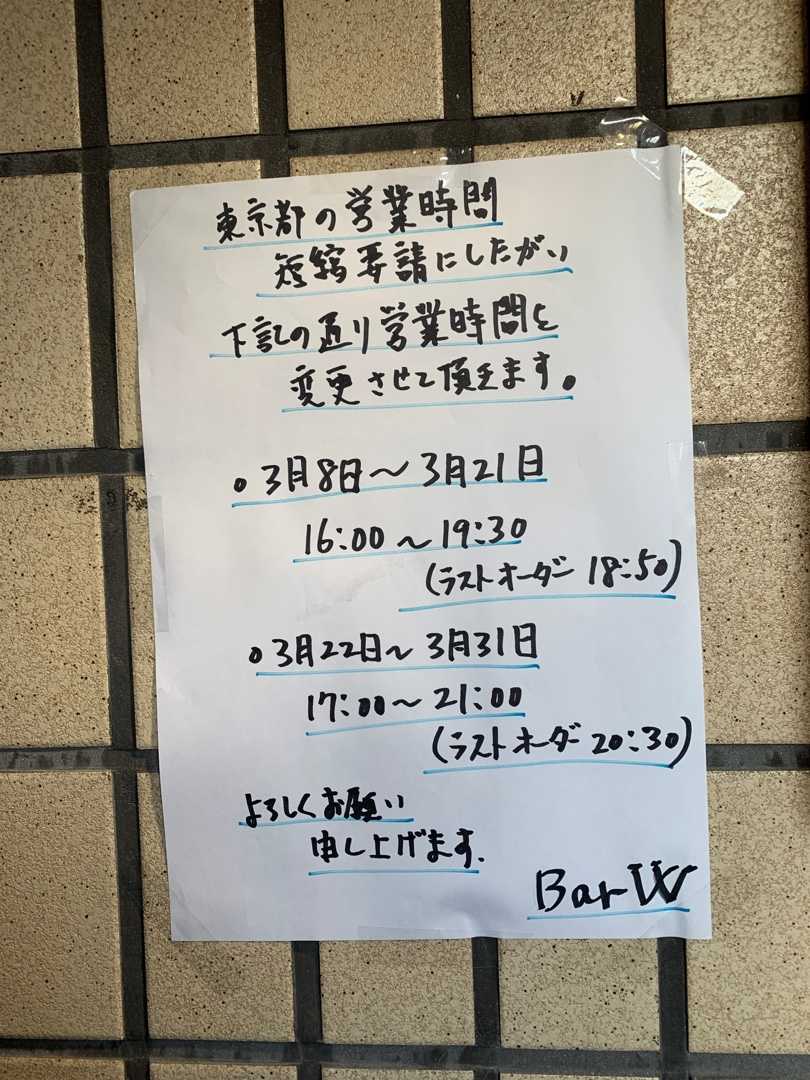 東京都の営業時間
短縮要請にしたがい
下記の通り営業時間を
変更させて頂きます。
。3月8日〜3月21日
16:00〜19:30
(ラストオーダー 18:50)
。3月22日〜3月31日
17:00〜21:00
(ラストオーダー 20:30)
よろしくお願い
申し上げます.
Bar W